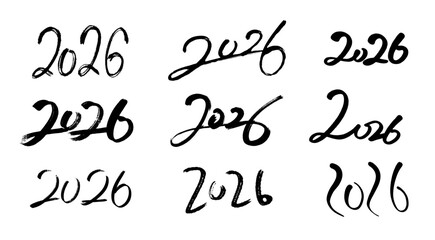 2026 2026 2026
2026 2026 2026
2026 2026 2026